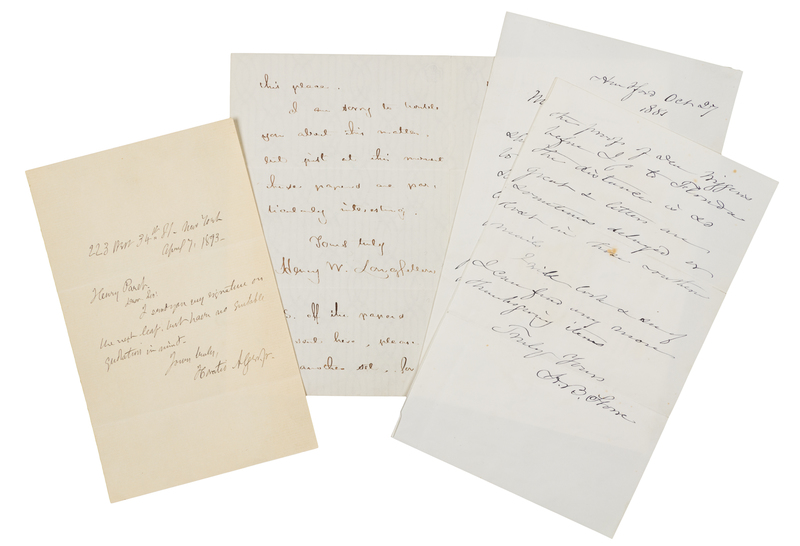 223 West 34th St. New York
April 7, 1893
Henry Parot.
Dear Sir:
I send you my signature on
the next leaf, but have no suitable
quotation in mind.
Yours truly,
Horatio Alger Jr.
this place.
I am sorry to trouble
you about this matter,
but just at this moment
these papers are par-
ticularly interesting.
Yours truly
Henry W. Longfellow
of the papers
here, please
another set, for
Hartford Oct 27
1881
the proofs of
before I go to Florida
The distance is so
great & letters are
sometimes delayed or
lost in these southern
mails
I will look & see if
I can find any more
Thanksgiving items
Truly Yours
H. B. Stowe